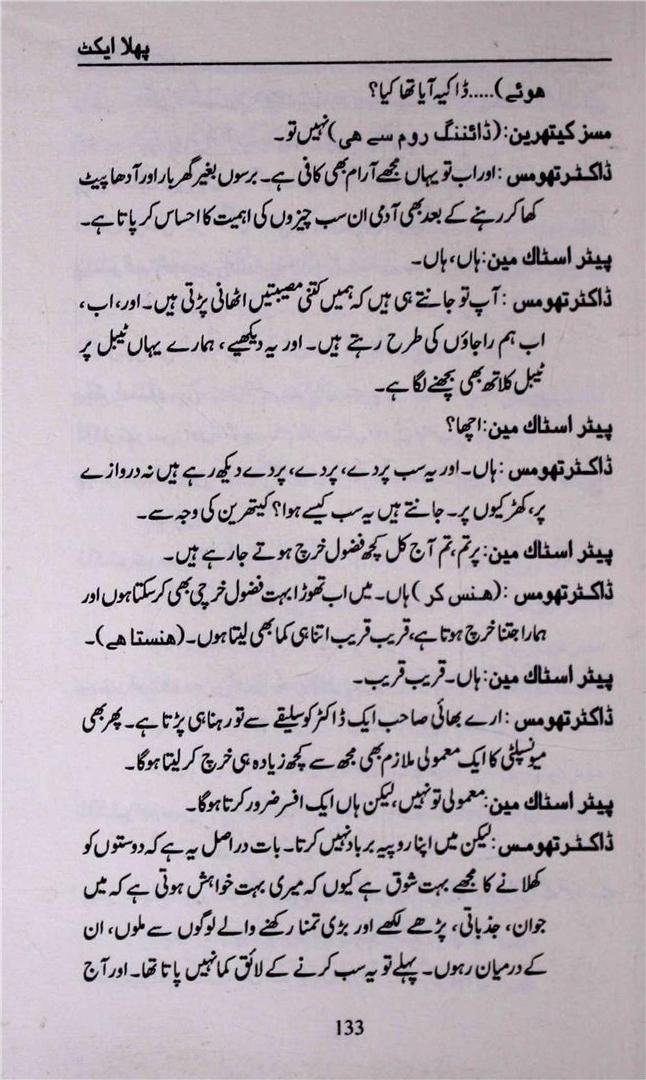 پہلا ایکٹ
ہوئے).....ڈاکیہ آیا تھا کیا؟
مسز کیتھرین: (ڈائننگ روم سے ہی) نہیں تو۔
ڈاکٹر تھومس: اور اب تو یہاں مجھے آرام بھی کافی ہے۔ برسوں بغیر گھر بار اور آدھا پیٹ
کھا کر رہنے کے بعد بھی آدمی ان سب چیزوں کی اہمیت کا احساس کر پاتا ہے۔
پیٹر اسٹاک مین: ہاں، ہاں۔
ڈاکٹر تھومس: آپ تو جانتے ہی ہیں کہ ہمیں کتنی مصیبتیں اٹھانی پڑتی ہیں۔ اور، اب،
اب ہم راجاؤں کی طرح رہتے ہیں۔ اور یہ دیکھیے، ہمارے یہاں ٹیبل پر
ٹیبل کلاتھ بھی بچھنے لگا ہے۔
پیٹر اسٹاک مین: اچھا؟
ڈاکٹر تھومس: ہاں۔ اور یہ سب پردے، پردے، پردے دیکھ رہے ہیں نہ دروازے
پر، کھڑکیوں پر۔ جانتے ہیں یہ سب کیسے ہوا؟ کیتھرین کی وجہ سے۔
پیٹر اسٹاک مین: پر تم، تم آج کل کچھ فضول خرچ ہوتے جا رہے ہیں۔
ڈاکٹر تھومس: (ہنس کر) ہاں۔ میں اب تھوڑا بہت فضول خرچی بھی کر سکتا ہوں اور
ہمارا جتنا خرچ ہوتا ہے، قریب قریب اتنا ہی کما بھی لیتا ہوں۔ (ہنستا ہے)۔
پیٹر اسٹاک مین: ہاں۔ قریب قریب۔
ڈاکٹر تھومس: ارے بھائی صاحب ایک ڈاکٹر کو سلیقے سے تو رہنا ہی پڑتا ہے۔ پھر بھی
میونسپلٹی کا ایک معمولی ملازم بھی مجھ سے کچھ زیادہ ہی خرچ کر لیتا ہوگا۔
پیٹر اسٹاک مین: معمولی تو نہیں، لیکن ہاں ایک افسر ضرور کرتا ہوگا۔
ڈاکٹر تھومس: لیکن میں اپنا روپیہ برباد نہیں کرتا۔ بات دراصل یہ ہے کہ دوستوں کو
کھلانے کا مجھے بہت شوق ہے کیوں کہ میری بہت خواہش ہوتی ہے کہ میں
جوان، جذباتی، پڑھے لکھے اور بڑی تمنا رکھنے والے لوگوں سے ملوں، ان
کے درمیان رہوں۔ پہلے تو یہ سب کرنے کے لائق کما نہیں پاتا تھا۔ اور آج
133